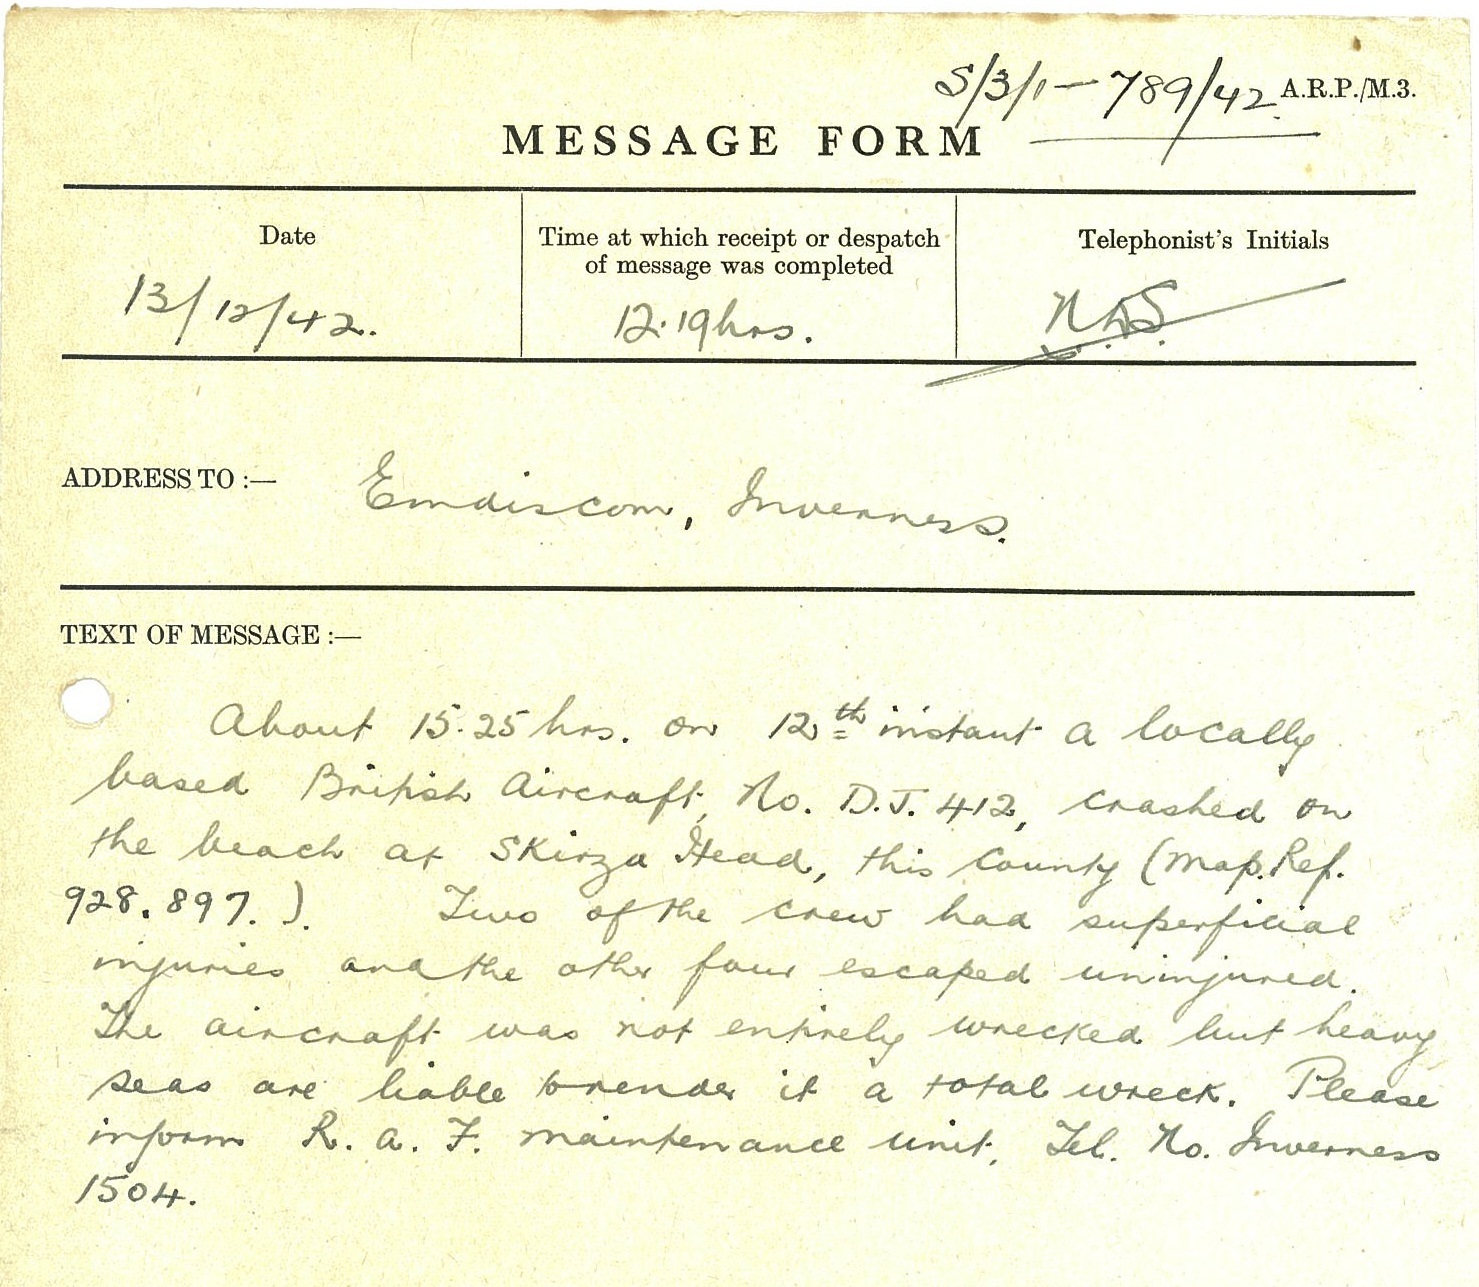 S/3/1 — 789/42. A.R.P./M.3.
MESSAGE FORM
Date
Time at which receipt or despatch
of message was completed
Telephonist's Initials
13/12/42.
12.19hrs.
ADDRESS TO :—
Emdiscom, Inverness.
TEXT OF MESSAGE :—
About 15.25 hrs. on 12th instant a locally
based British Aircraft, No. D.J. 412, crashed on
the beach at Skirza Head, this County (Map. Ref.
928.897.). Two of the crew had superficial
injuries and the other four escaped uninjured.
The aircraft was not entirely wrecked but heavy
seas are liable to render it a total wreck. Please
inform R.A.F. maintenance unit, Tel. No. Inverness
1504.